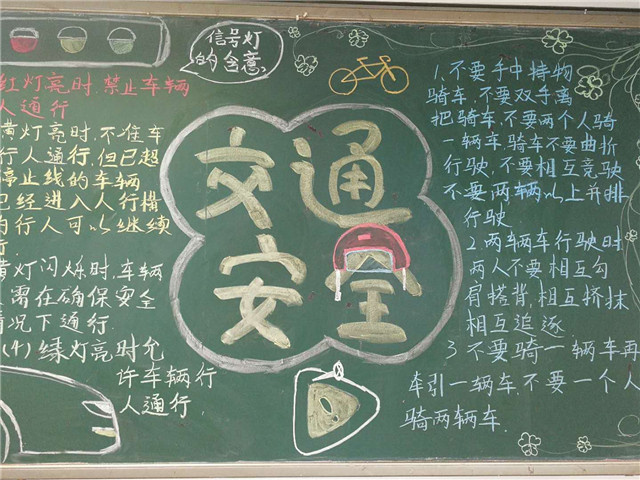 信号灯
的含意
红灯亮时,禁止车辆
人通行
黄灯亮时,不准车
行人通行,但已越
停止线的车辆
已经进入人行横
的行人可以继续
行.
黄灯闪烁时,车辆
需在确保安全
情况下通行.
(4)绿灯亮时允
许车辆行
人通行,
交通
安全
1、不要手中持物
骑车,不要双手离
把骑车,不要两个人骑
一辆车,骑车不要曲折
行驶,不要相互竞驶
不要两辆以上并排
行驶
2、两辆车行驶时
两人不要相互勾
肩搭背,相互挤抹
相互追逐
3 不要骑一辆车再
车引一辆车,不要一个人
骑两辆车.